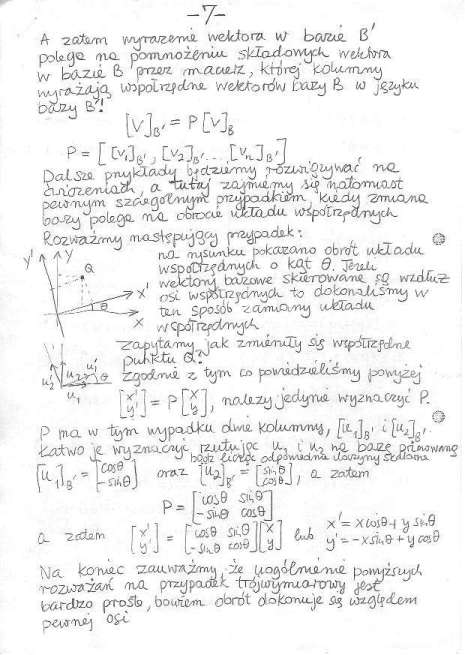 -7-
A zatem wyrażenie wektora w bazie B'
polega na pomnożeniu składowych wektora
w bazie B przez macierz, której kolumny
wyrażają współrzędne wektorów bazy B w języku
bazy B'!
[V]_B' = P [V]_B
P = [ [v₁]_B', [v₂]_B' ... [vₙ]_B' ]
Dalsze przykłady będziemy rozwiązywać na
ćwiczeniach, a tutaj zajmiemy się natomiast
pewnym szczególnym przypadkiem, kiedy zmiana
bazy polega na obrocie układu współrzędnych
Rozważmy następujący przypadek:
na rysunku pokazano obrót układu
współrzędnych o kąt θ. Jeżeli
wektory bazowe skierowane są wzdłuż
osi współrzędnych to dokonaliśmy w
ten sposób zamiany układu
współrzędnych
y' y Q x' θ x
zapytamy jak zmieniły się współrzędne
punktu Q?
zgodnie z tym co powiedzieliśmy powyżej
u₂' u₂ u₁' θ u₁
[x' y'] = P [x y], należy jedynie wyznaczyć P.
P ma w tym wypadku dwie kolumny, [u₁]_B' i [u₂]_B'.
Łatwo je wyznaczyć rzutując u₁ i u₂ na bazę primowaną
bądź licząc odpowiednie iloczyny skalarne
[u₁]_B' = [cosθ -sinθ] oraz [u₂]_B' = [sinθ cosθ], a zatem
P = [cosθ sinθ -sinθ cosθ]
a zatem [x' y'] = [cosθ sinθ -sinθ cosθ] [x y] lub x' = x cosθ + y sinθ
y' = -x sinθ + y cosθ
Na koniec zauważmy, że uogólnienie powyższych
rozważań na przypadek trójwymiarowy jest
bardzo proste, bowiem obrót dokonuje się względem
pewnej osi